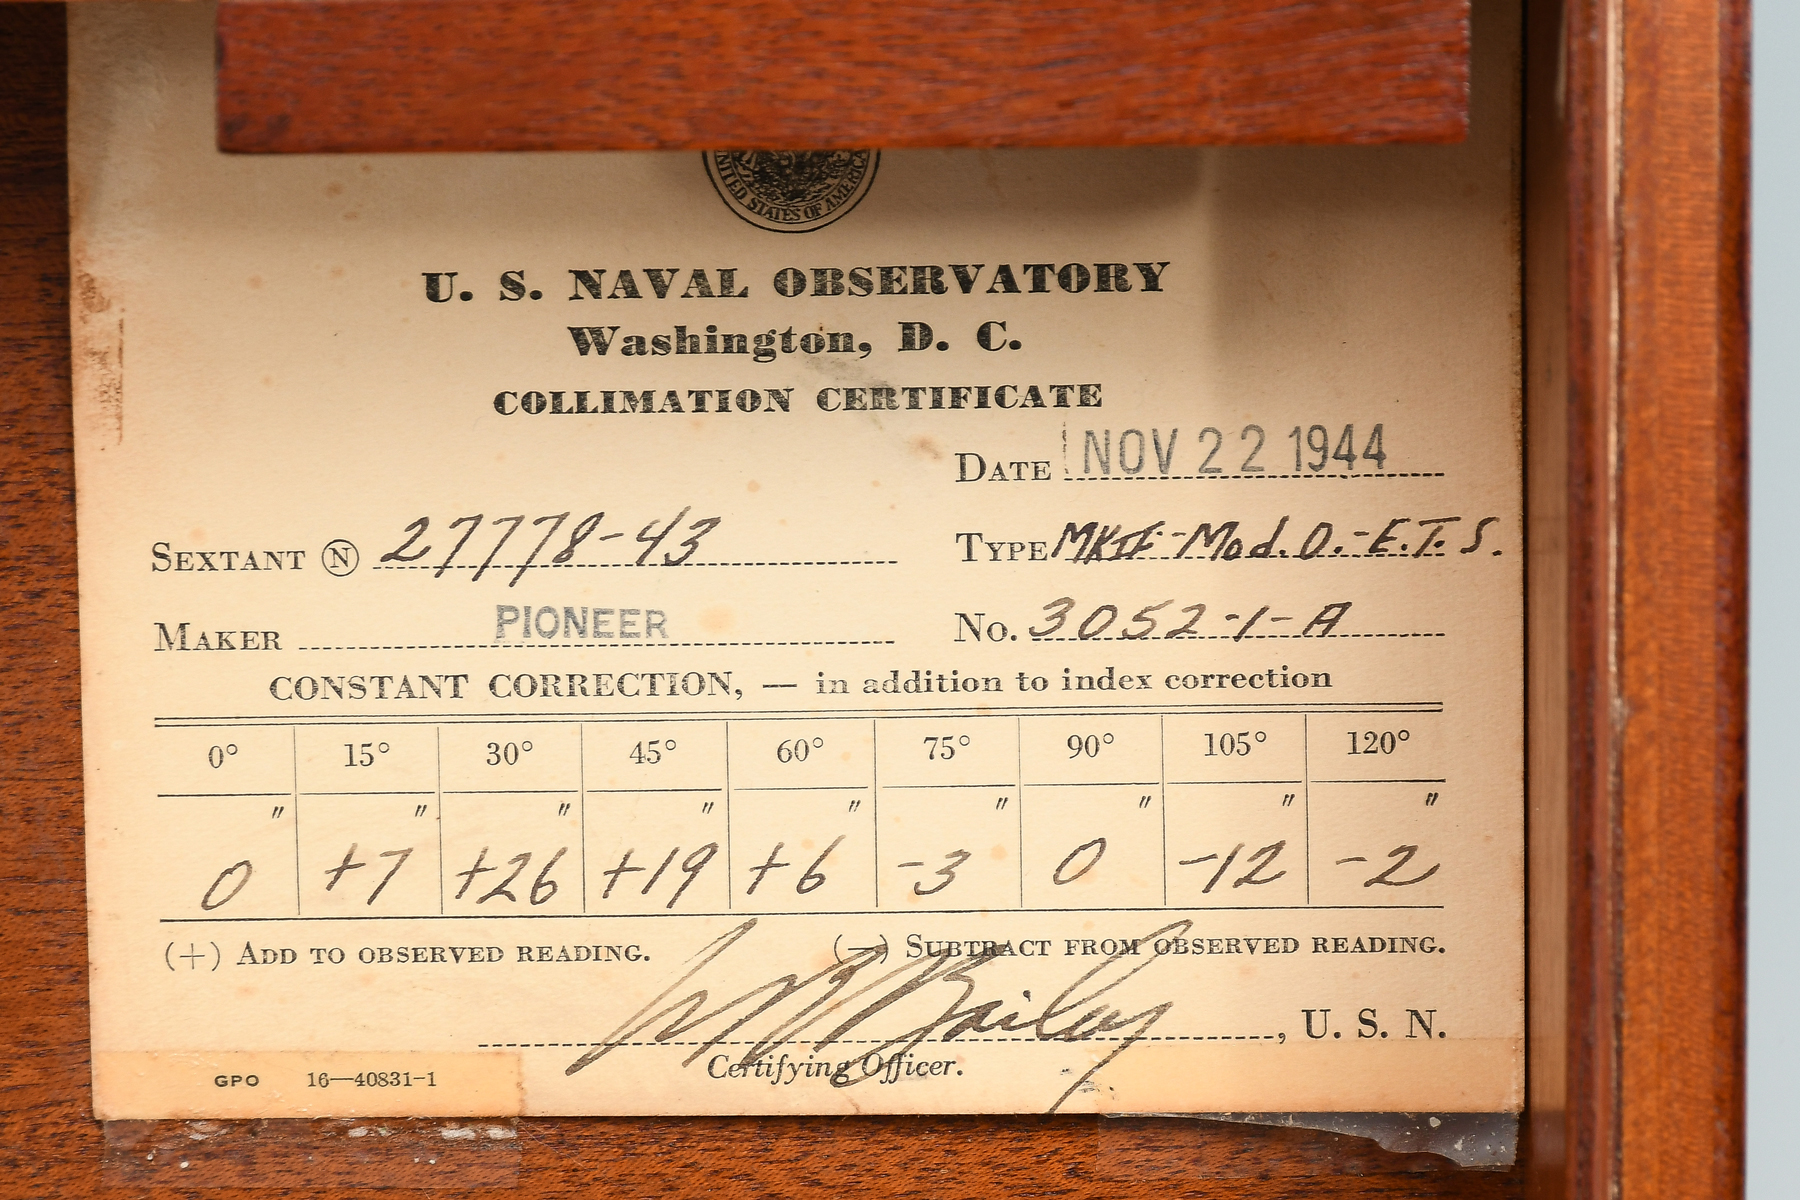 UNITED STATES OF AMERICA
U. S. NAVAL OBSERVATORY
Washington, D. C.
COLLIMATION CERTIFICATE
DATE NOV 22 1944
SEXTANT Ⓝ 27778-43 TYPE MKII-Mod.O.-E.T.S.
MAKER PIONEER No. 3052-1-A
CONSTANT CORRECTION, — in addition to index correction
0° 15° 30° 45° 60° 75° 90° 105° 120°
" " " " " " " " "
0 +7 +26 +19 +6 -3 0 -12 -2
(+) ADD TO OBSERVED READING. (—) SUBTRACT FROM OBSERVED READING.
Bailey, U. S. N.
Certifying Officer.
GPO 16—40831-1